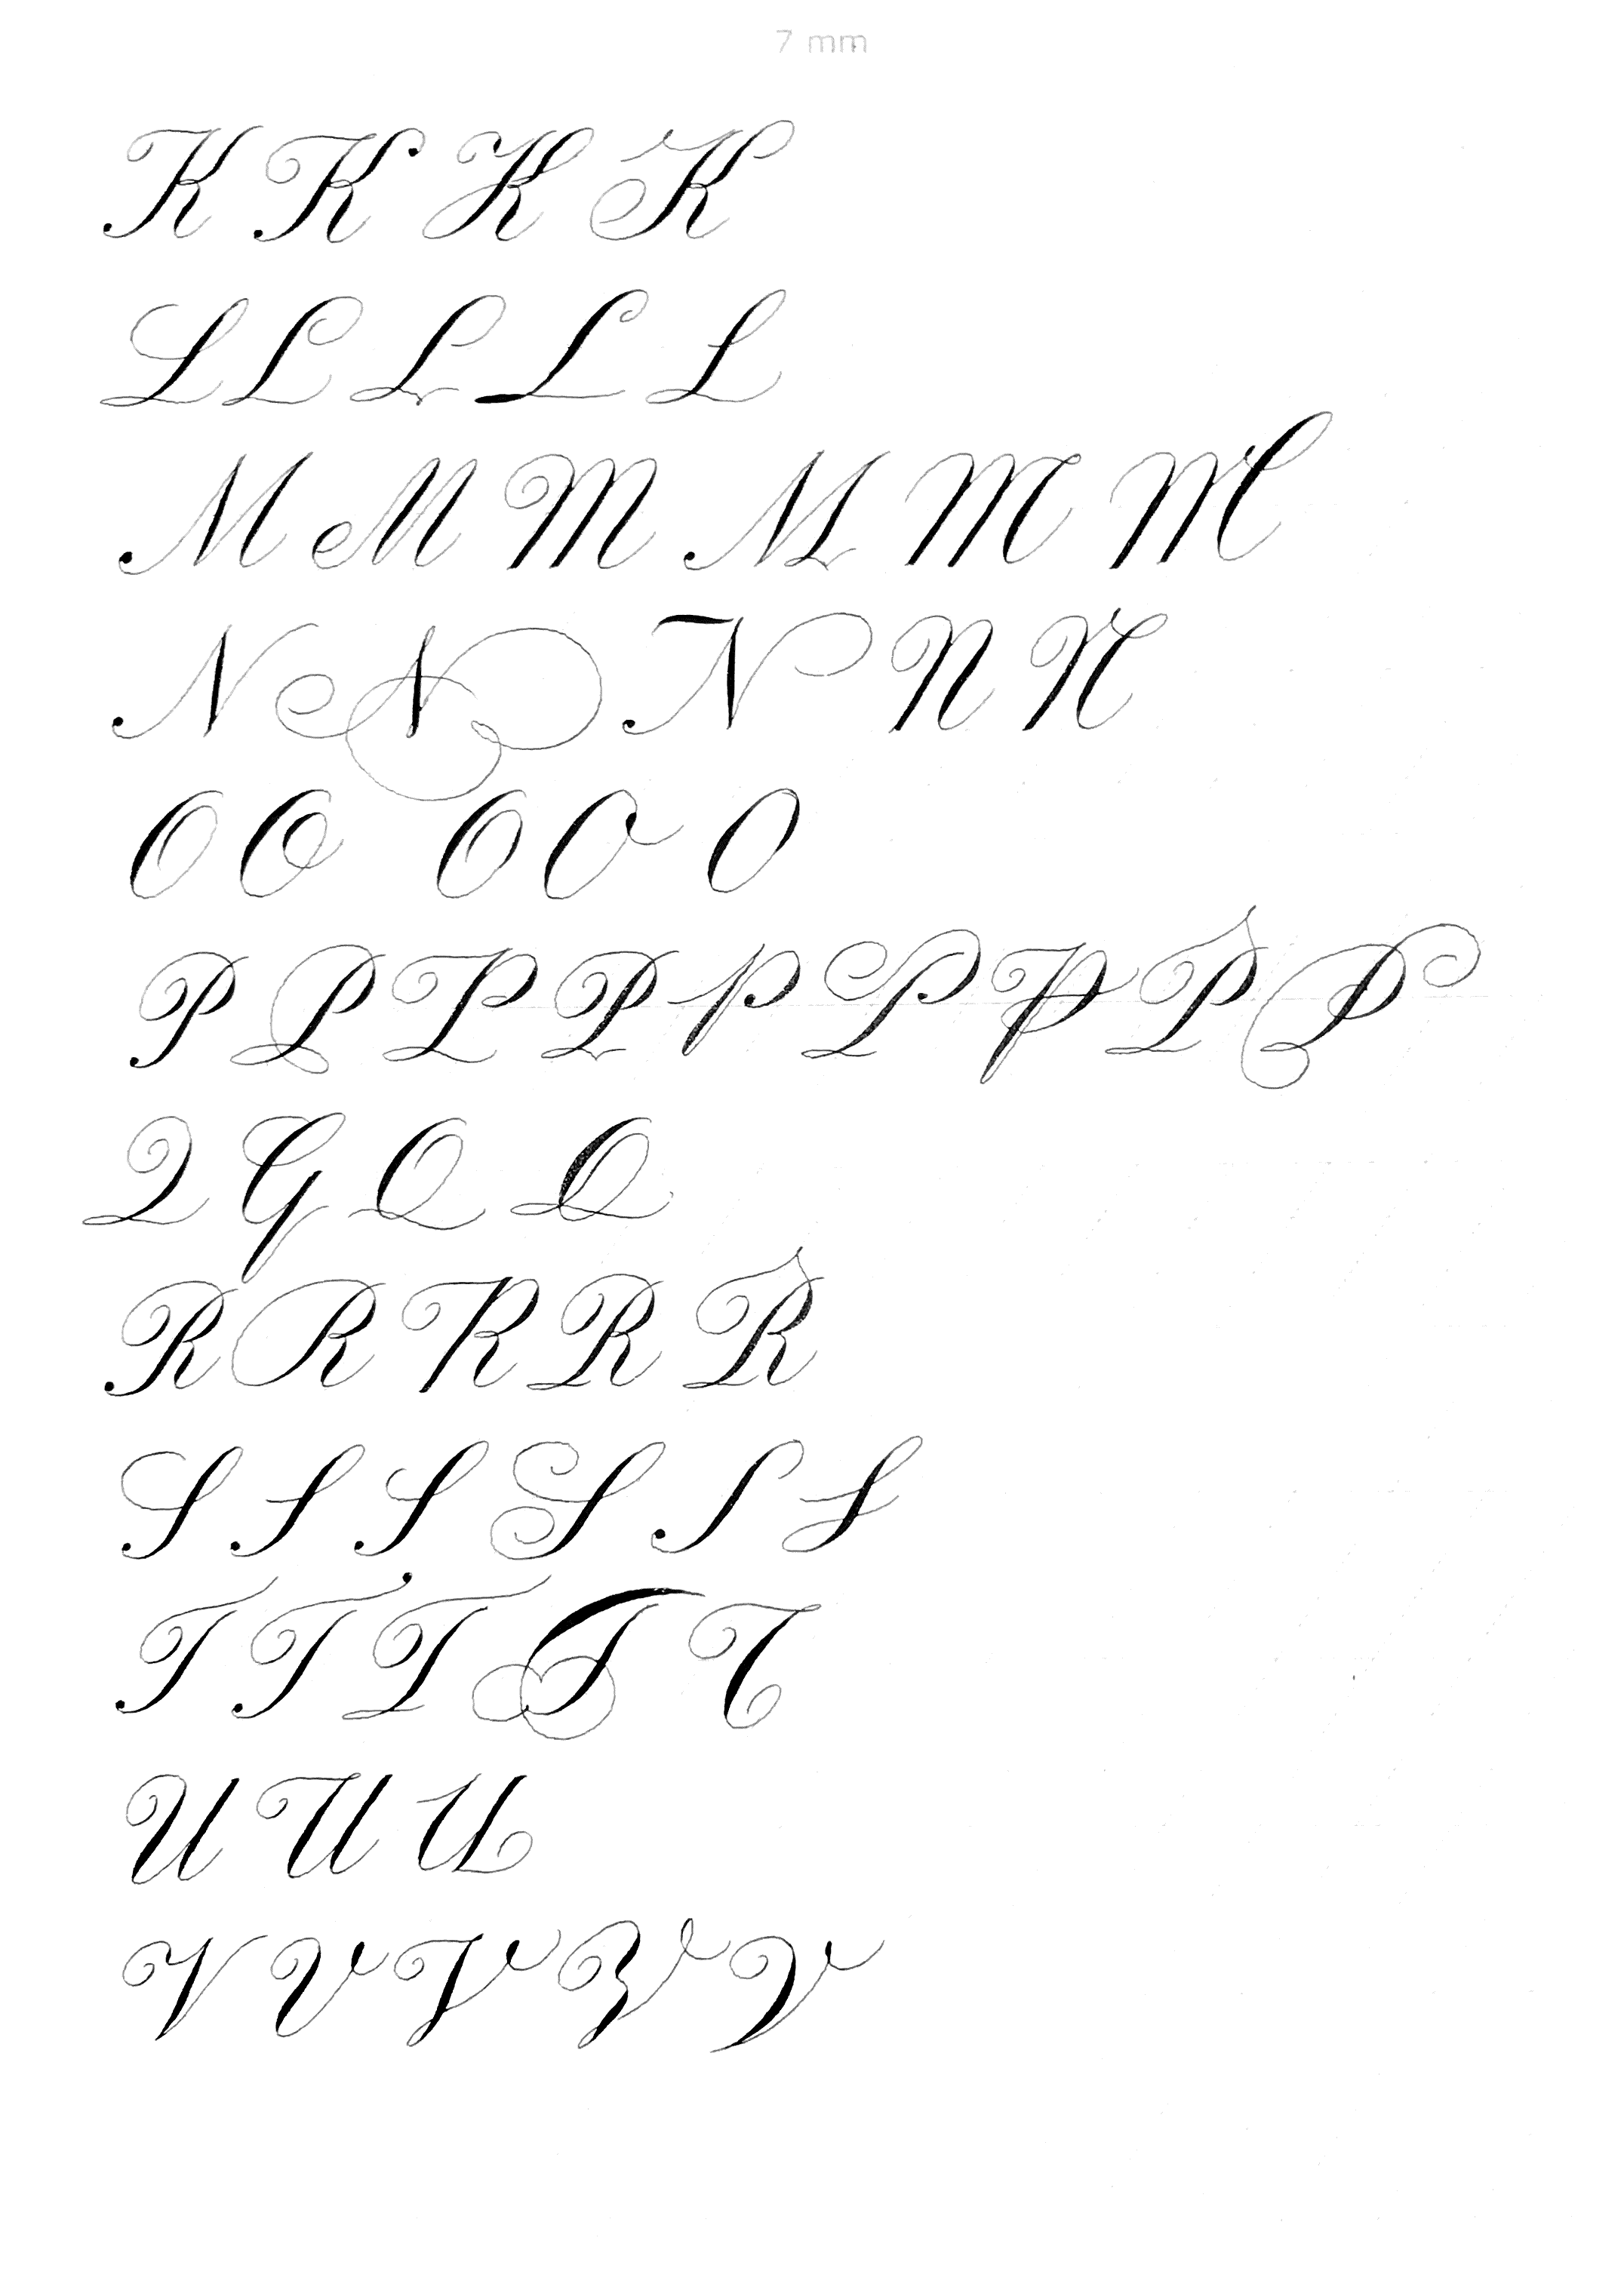 7 mm
K K K K
L L L L L
M M M M M M
N N N N N
O O O O O
P P P P P P P P P
Q Q Q Q
R R R R R
S S S S S S
T T T T T
U U U
V V V V V